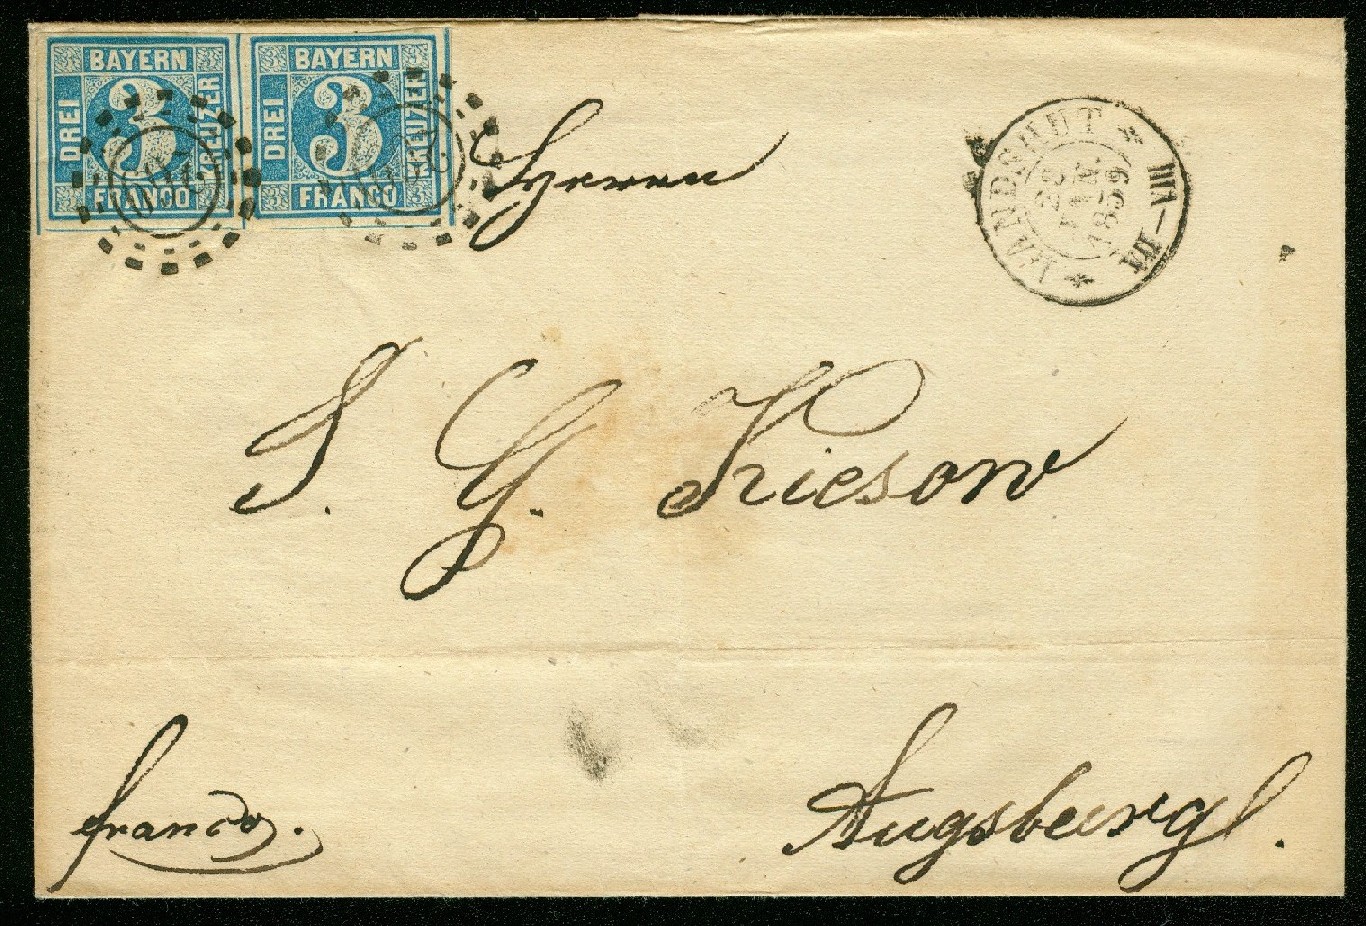 BAYERN
DREI 3 KREUZER
FRANCO
BAYERN
DREI 3 KREUZER
FRANCO
LANDSHUT
JAN.
1859
III-VII
Herrn
J. G. Kieson
Augsburg.
franco.